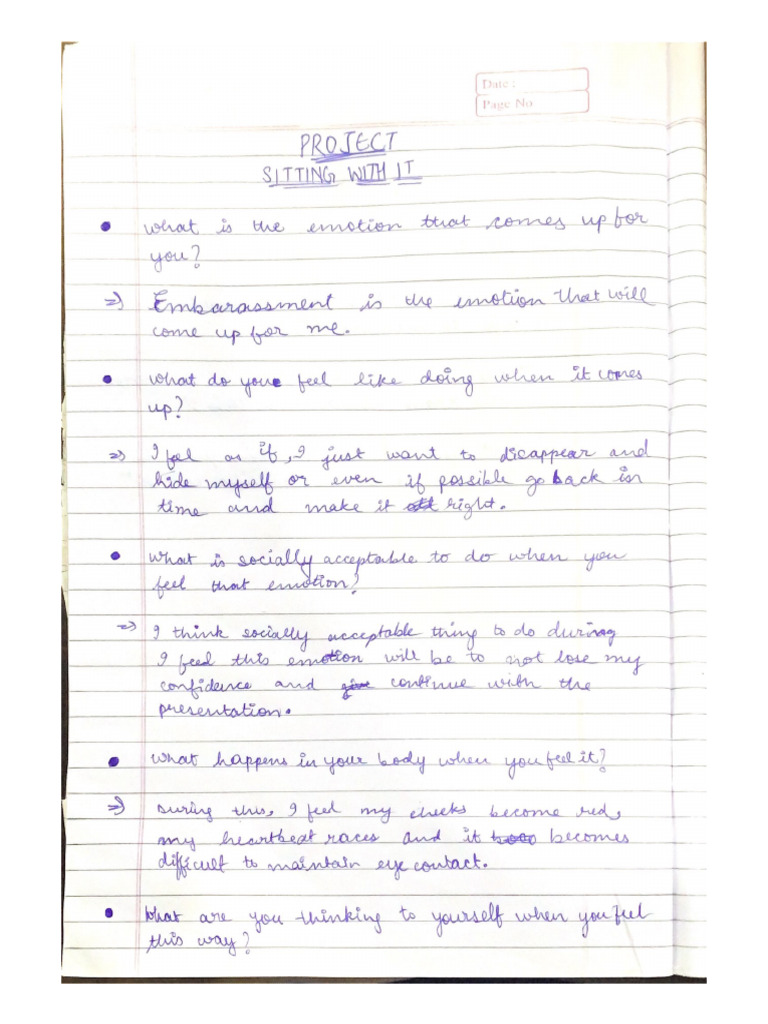 Date :
Page No
PROJECT
SITTING WITH IT
• What is the emotion that comes up for
you?
=> Embarassment is the emotion that will
come up for me.
• What do you feel like doing when it comes
up?
=> I feel as if, I just want to disappear and
hide myself or even if possible go back in
time and make it right.
• What is socially acceptable to do when you
feel that emotion?
=> I think socially acceptable thing to do during
I feel this emotion will be to not lose my
confidence and continue with the
presentation.
• What happens in your body when you feel it?
=> During this, I feel my cheeks become red,
my heartbeat races and it becomes
difficult to maintain eye contact.
• What are you thinking to yourself when you feel
this way?